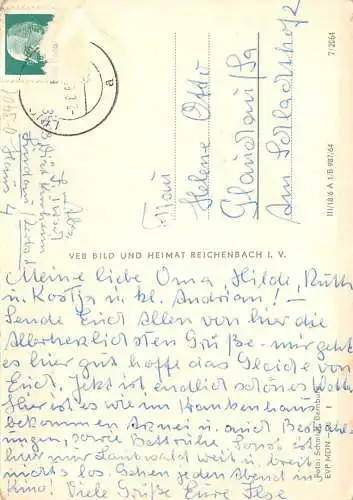 7/2664
III/18/6 A 1/B 987/64
Frau
Helene Otto
Glauchau/Sa
Am Schlachthof 2
VEB BILD UND HEIMAT REICHENBACH I. V.
Meine liebe Oma, Hilde, Ruth
u. Kostja u. kl. Andrian! —
Sende Euch Allen von hier die
Allerherzlichsten Grüße - mir geht
es hier gut hoffe das Gleiche von
Euch. Jetzt ist endlich schönes
Hier ist es wie im Krankenhaus
bekommen Arznei u. auch Bestrah-
lungen, sowie Bettruhe. Sonst ist
hier nur Laubwald weit u. breit
nichts los. Gehen jeden Abend in
Kino! Viele Grüße Eure
Foto: Schmidt, Bernburg
EVP MDN